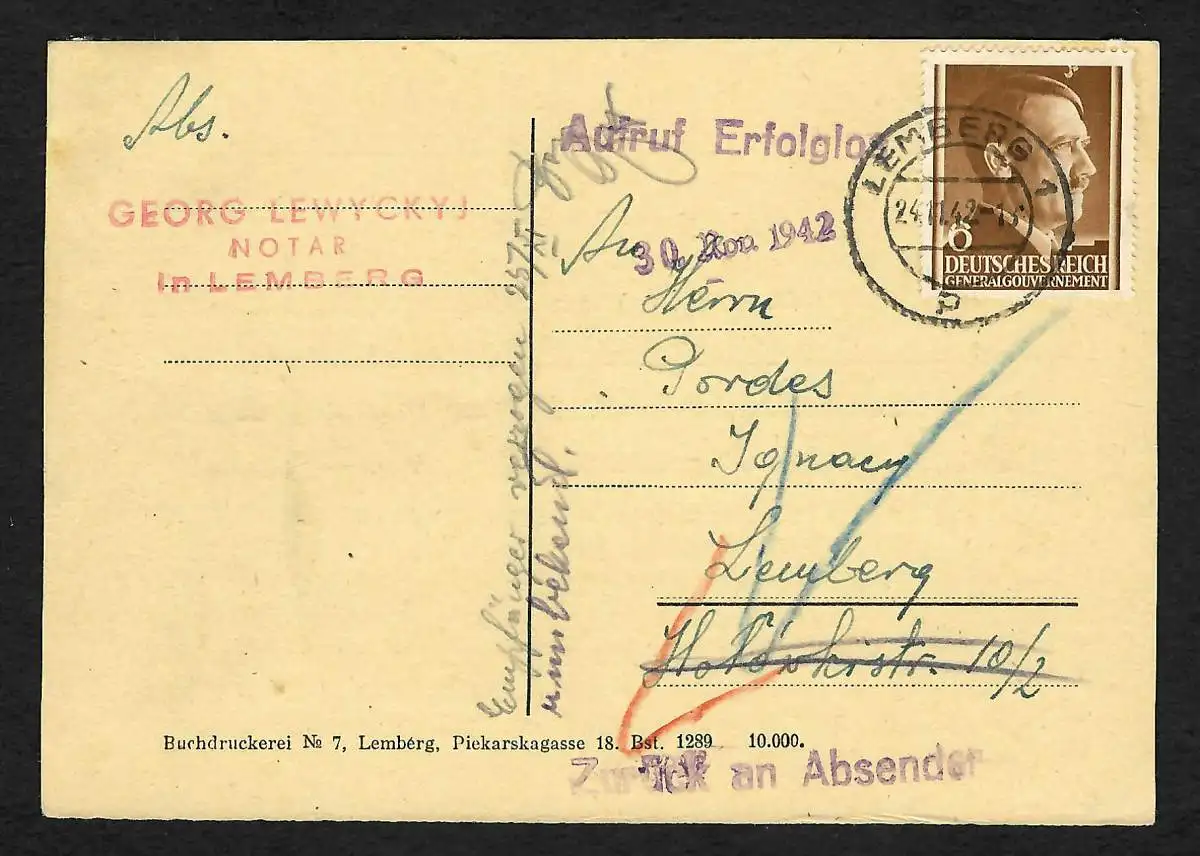 Abs.
GEORG LEWYCKYJ
NOTAR
in LEMBERG
Aufruf Erfolglos
30. Nov 1942
LEMBERG 1
24.11.42
p
6
DEUTSCHES REICH
GENERALGOUVERNEMENT
An
Herrn
Pordes
Ignacy
Lemberg
10/2
Empfänger verzogen 25/XI
unbekannt.
Buchdruckerei № 7, Lemberg, Piekarskagasse 18. Bst. 1289 10.000.
Zurück an Absender